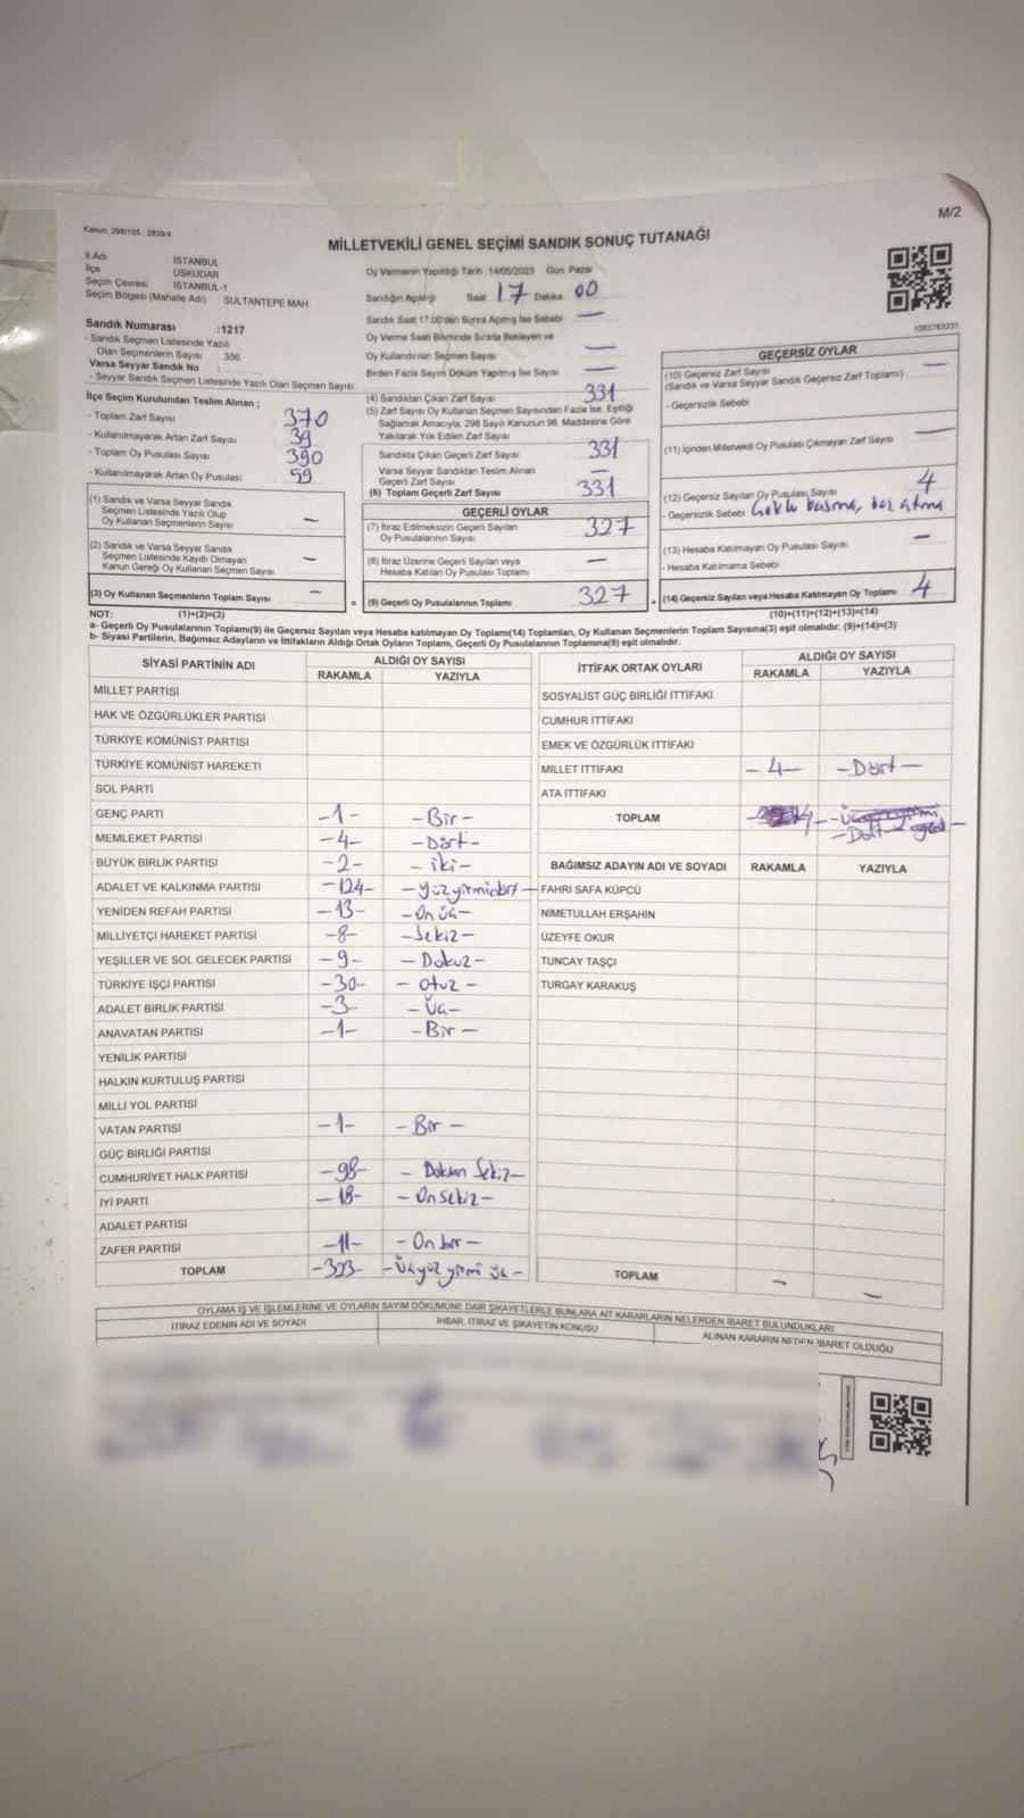 M/2
Kanun: 298/105 , 2839/4
MİLLETVEKİLİ GENEL SEÇİMİ SANDIK SONUÇ TUTANAĞI
İl Adı İSTANBUL
İlçe ÜSKÜDAR
Seçim Çevresi İSTANBUL-1
Seçim Bölgesi (Mahalle Adı) SULTANTEPE MAH.
Sandık Numarası :1217
- Sandık Seçmen Listesinde Yazılı
Olan Seçmenlerin Sayısı
Varsa Seyyar Sandık No :
- Seyyar Sandık Seçmen Listesinde Yazılı Olan Seçmen Sayısı
İlçe Seçim Kurulundan Teslim Alınan ;
- Toplam Zarf Sayısı 370
- Kullanılmayarak Artan Zarf Sayısı 39
- Toplam Oy Pusulası Sayısı 390
- Kullanılmayarak Artan Oy Pusulası 59
(1) Sandık ve Varsa Seyyar Sandık
Seçmen Listesinde Yazılı Olup
Oy Kullanan Seçmenlerin Sayısı –
(2) Sandık ve Varsa Seyyar Sandık
Seçmen Listesinde Kayıtlı Olmayan
Kanun Gereği Oy Kullanan Seçmen Sayısı –
(3) Oy Kullanan Seçmenlerin Toplam Sayısı –
Oy Vermenin Yapıldığı Tarih :14/05/2023 Gün: Pazar
Sandığın Açıldığı Saat 17 Dakika 00
Sandık Saat 17:00'den Sonra Açılmış İse Sebebi —
Oy Verme Saati Bitiminde Sırada Bekleyen ve
Oy Kullandırılan Seçmen Sayısı —
Birden Fazla Sayım Döküm Yapılmış İse Sayısı —
(4) Sandıktan Çıkan Zarf Sayısı 331
(5) Zarf Sayısı Oy Kullanan Seçmen Sayısından Fazla İse, Eşitliği
Sağlamak Amacıyla, 298 Sayılı Kanunun 98. Maddesine Göre
Yakılarak Yok Edilen Zarf Sayısı
Sandıkta Çıkan Geçerli Zarf Sayısı 331
Varsa Seyyar Sandıktan Teslim Alınan
Geçerli Zarf Sayısı —
(6) Toplam Geçerli Zarf Sayısı 331
GEÇERLİ OYLAR
(7) İtiraz Edilmeksizin Geçerli Sayılan
Oy Pusulalarının Sayısı 327
(8) İtiraz Üzerine Geçerli Sayılan veya
Hesaba Katılan Oy Pusulası Toplamı —
= (9) Geçerli Oy Pusulalarının Toplamı 327
GEÇERSİZ OYLAR
(10) Geçersiz Zarf Sayısı —
(Sandık ve Varsa Seyyar Sandık Geçersiz Zarf Toplamı)
- Geçersizlik Sebebi
(11) İçinden Milletvekili Oy Pusulası Çıkmayan Zarf Sayısı —
(12) Geçersiz Sayılan Oy Pusulası Sayısı 4
- Geçersizlik Sebebi
(13) Hesaba Katılmayan Oy Pusulası Sayısı —
- Hesaba Katılmama Sebebi
+ (14) Geçersiz Sayılan veya Hesaba Katılmayan Oy Toplamı 4
NOT: (1)+(2)=(3) (10)+(11)+(12)+(13)=(14)
a- Geçerli Oy Pusulalarının Toplamı(9) ile Geçersiz Sayılan veya Hesaba katılmayan Oy Toplamı(14) Toplamları, Oy Kullanan Seçmenlerin Toplam Sayısına(3) eşit olmalıdır. (9)+(14)=(3)
b- Siyasi Partilerin, Bağımsız Adayların ve İttifakların Aldığı Ortak Oyların Toplamı, Geçerli Oy Pusulalarının Toplamına(9) eşit olmalıdır.
SİYASİ PARTİNİN ADI ALDIĞI OY SAYISI
RAKAMLA YAZIYLA
MİLLET PARTİSİ
HAK VE ÖZGÜRLÜKLER PARTİSİ
TÜRKİYE KOMÜNİST PARTİSİ
TÜRKİYE KOMÜNİST HAREKETİ
SOL PARTİ
GENÇ PARTİ -1- -Bir-
MEMLEKET PARTİSİ -4- -Dört-
BÜYÜK BİRLİK PARTİSİ -2- -iki-
ADALET VE KALKINMA PARTİSİ -124- -Yüzyirmidört-
YENİDEN REFAH PARTİSİ -13- -Onüç-
MİLLİYETÇİ HAREKET PARTİSİ -8- -Sekiz-
YEŞİLLER VE SOL GELECEK PARTİSİ -9- -Dokuz-
TÜRKİYE İŞÇİ PARTİSİ -30- -otuz-
ADALET BİRLİK PARTİSİ -3- -Üç-
ANAVATAN PARTİSİ -1- -Bir-
YENİLİK PARTİSİ
HALKIN KURTULUŞ PARTİSİ
MİLLİ YOL PARTİSİ
VATAN PARTİSİ -1- -Bir-
GÜÇ BİRLİĞİ PARTİSİ
CUMHURİYET HALK PARTİSİ -98- -Doksan Sekiz-
İYİ PARTİ -18- -Onsekiz-
ADALET PARTİSİ
ZAFER PARTİSİ -11- -Onbir-
TOPLAM -323- -Üçyüz yirmi üç-
İTTİFAK ORTAK OYLARI ALDIĞI OY SAYISI
RAKAMLA YAZIYLA
SOSYALİST GÜÇ BİRLİĞİ İTTİFAKI
CUMHUR İTTİFAKI
EMEK VE ÖZGÜRLÜK İTTİFAKI
MİLLET İTTİFAKI -4- -Dört-
ATA İTTİFAKI
TOPLAM
BAĞIMSIZ ADAYIN ADI VE SOYADI RAKAMLA YAZIYLA
FAHRİ SAFA KÜPCÜ
NİMETULLAH ERŞAHİN
ÜZEYFE OKUR
TUNCAY TAŞÇI
TURGAY KARAKUŞ
TOPLAM – –
OYLAMA İŞ VE İŞLEMLERİNE VE OYLARIN SAYIM DÖKÜMÜNE DAİR ŞİKAYETLERLE BUNLARA AİT KARARLARIN NELERDEN İBARET BULUNDUKLARI
İTİRAZ EDENİN ADI VE SOYADI İHBAR, İTİRAZ VE ŞİKAYETİN KONUSU ALINAN KARARIN NEDEN İBARET OLDUĞU